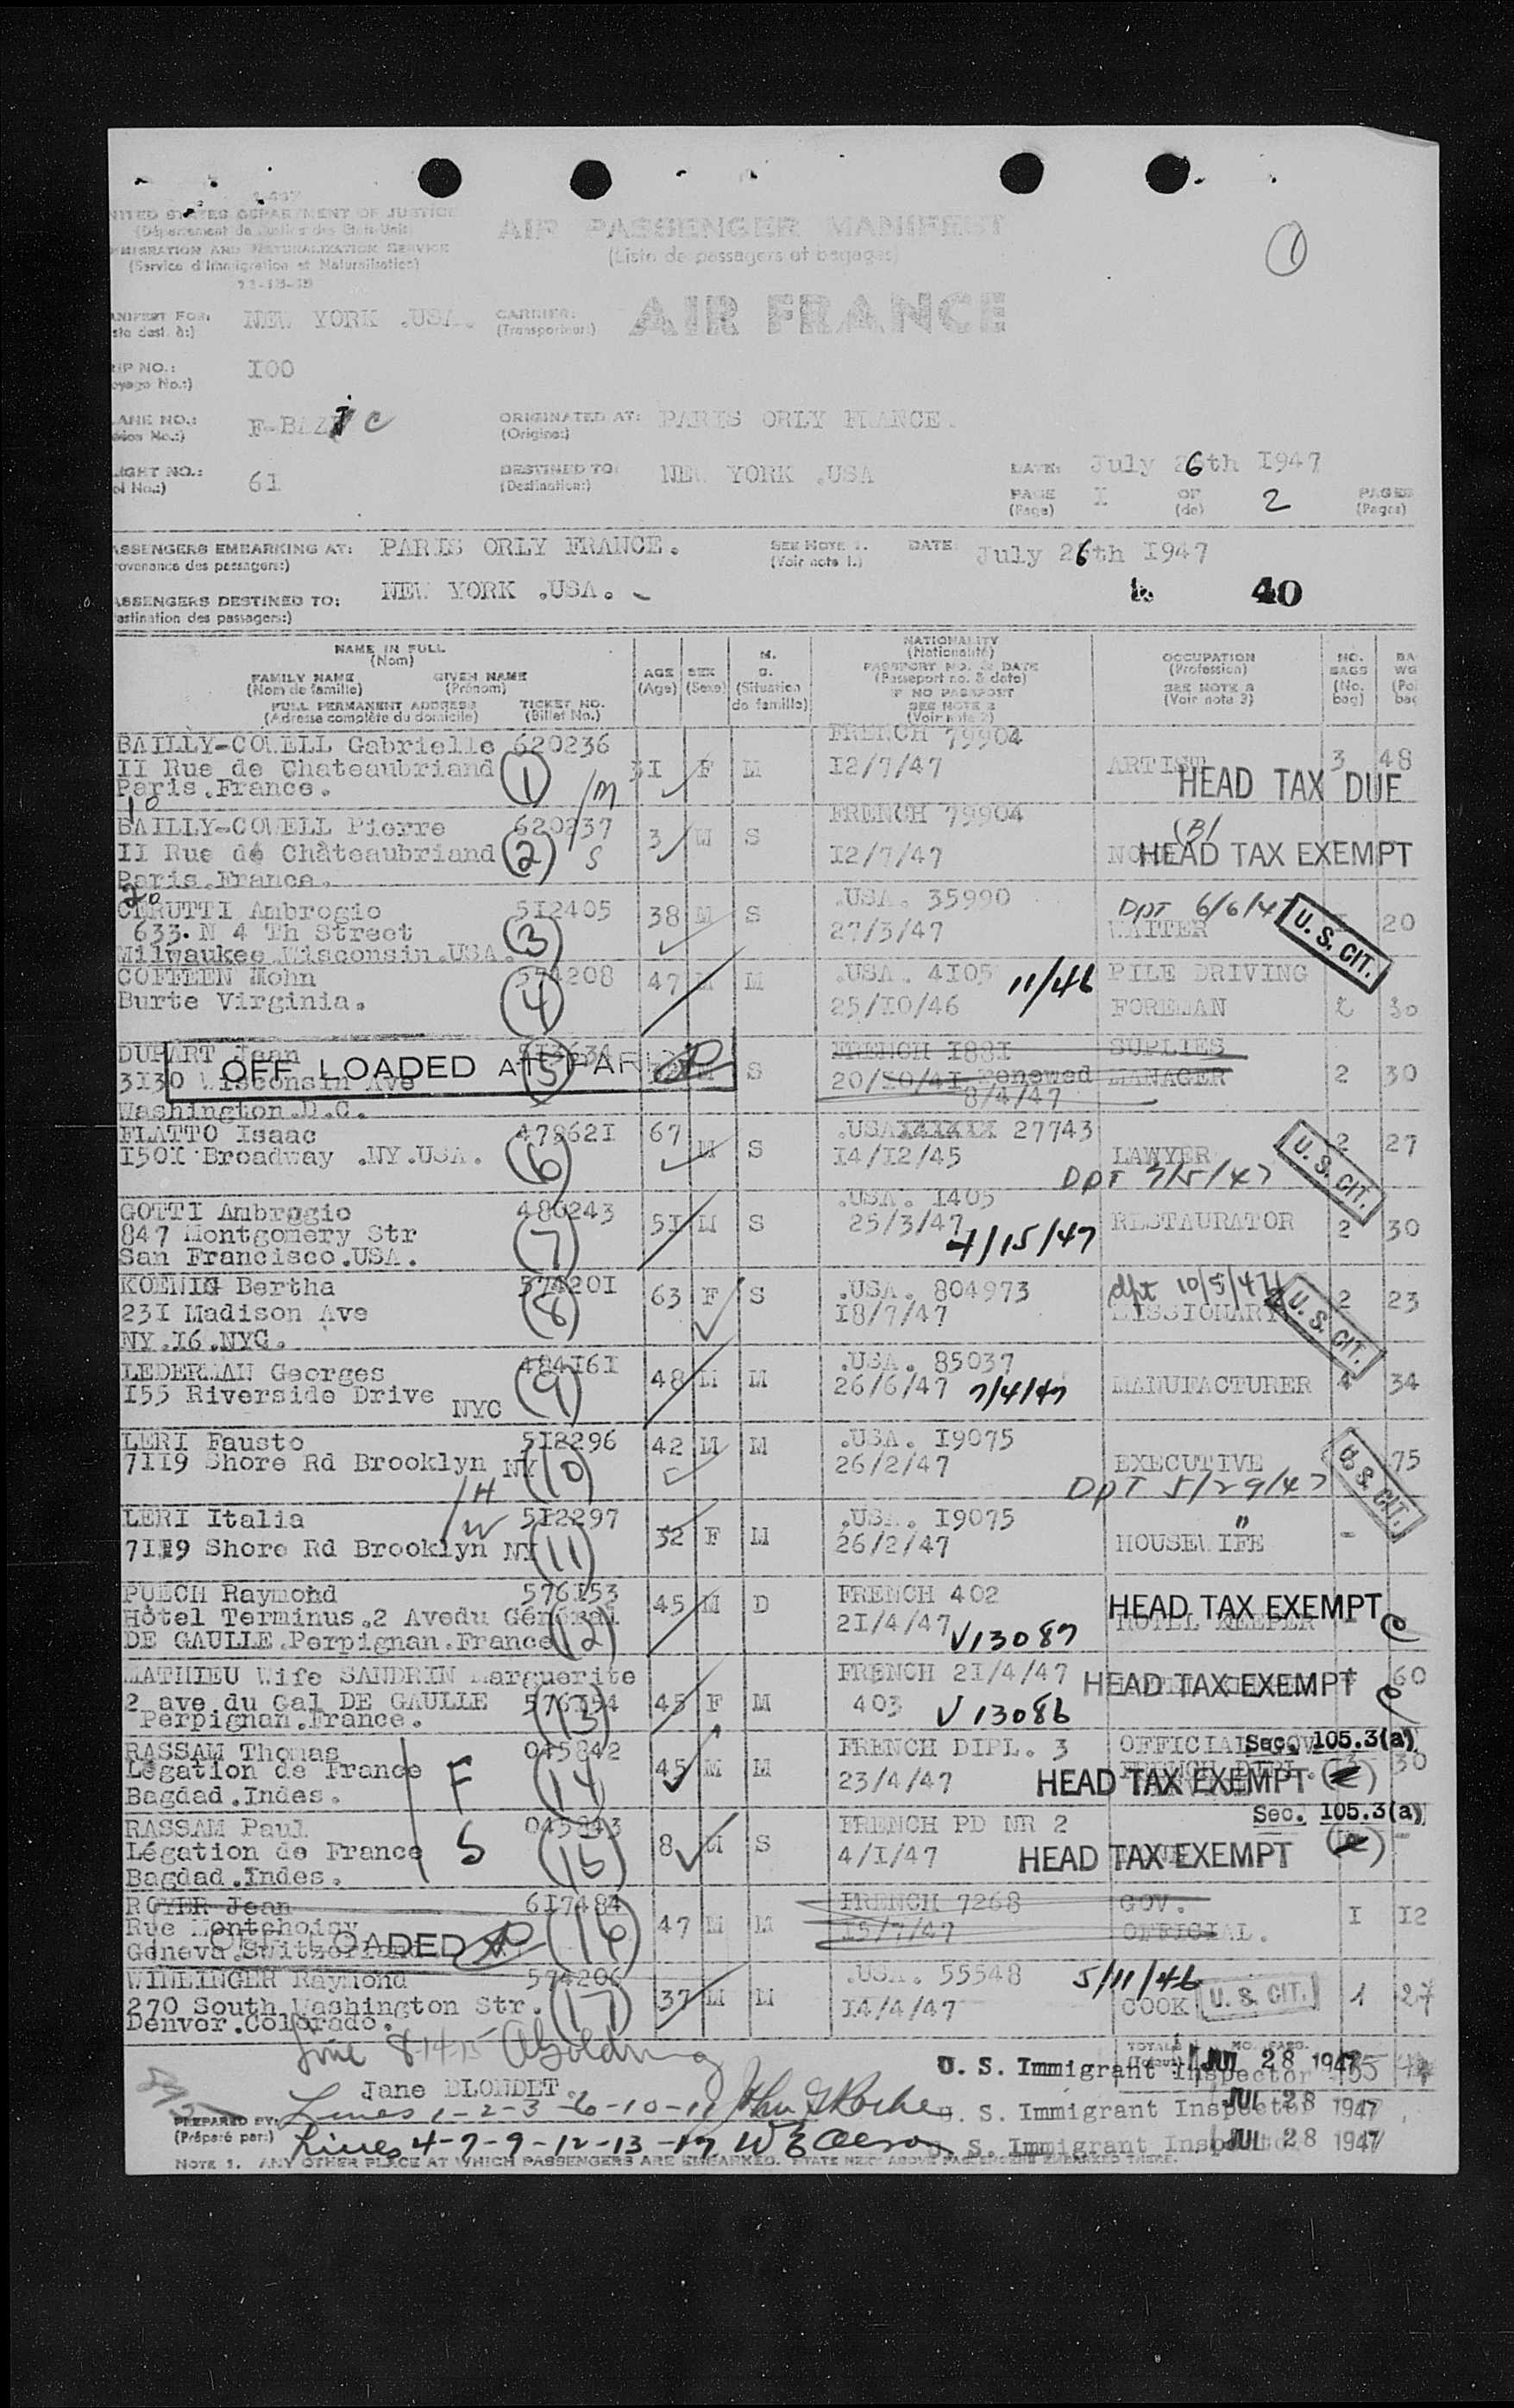 I-487
NITED STATES DEPARTMENT OF JUSTICE
(Département de Justice des Etats-Unis)
MIGRATION AND NATURALIZATION SERVICE
(Service d'Immigration et Naturalisation)
AIR PASSENGER MANIFEST
(Liste de passagers et bagages)
1
ANIFEST FOR: NEW YORK .USA. CARRIER: AIR FRANCE
ste dest. à:) (Transporteur:)
RIP NO.: I00
oyage No.:)
LANE NO.: F-BAZ C ORIGINATED AT: PARIS ORLY FRANCE.
vion No.:) (Origine:)
LIGHT NO.: 61 DESTINED TO: NEW YORK .USA DATE: July 26th I947
ol No.:) (Destination:) PAGE I OF 2 PAGES
(Page) (de) (Pages)
ASSENGERS EMBARKING AT: PARIS ORLY FRANCE. SEE NOTE 1. DATE July 26th I947
rovenance des passagers:) (Voir note 1.)
ASSENGERS DESTINED TO: NEW YORK .USA. 40
estination des passagers:)
NAME IN FULL (Nom)
FAMILY NAME GIVEN NAME
(Nom de famille) (Prénom)
FULL PERMANENT ADDRESS TICKET NO.
(Adresse complète du domicile) (Billet No.)
AGE (Age)
SEX (Sexe)
M. S. (Situation de famille)
NATIONALITY (Nationalité)
PASSPORT NO. & DATE
(Passeport no. & date)
IF NO PASSPORT
SEE NOTE 2
(Voir note 2)
OCCUPATION (Profession)
SEE NOTE 3
(Voir note 3)
NO. BAGS (No. bag)
BA WG
BAILLY-COWELL Gabrielle 620236 FRENCH 79904
II Rue de Chateaubriand (1) 31 F M I2/7/47 ARTIST 3 48
Paris.France. /m HEAD TAX DUE
BAILLY-COWELL Pierre 620237 FRENCH 79904
II Rue de Châteaubriand (2) S 3 M S I2/7/47 NONE HEAD TAX EXEMPT
Paris.France.
CERUTTI Ambrogio 5I2405 38 M S .USA. 35990 Dpt 6/6/47 U. S. CIT. 20
633. N 4 Th Street (3) 27/3/47 WAITER
Milwaukee Wisconsin.USA.
COFFEEN Mohn 574208 47 M M .USA. 4I05 11/46 PILE DRIVING
Burte Virginia. (4) 25/I0/46 FOREMAN 2 30
DUPART Jean (5) M S FRENCH I88I SUPLIES
OFF LOADED AT PARIS
3I30 Wisconsin Ave 20/I0/4I renewed MANAGER 2 30
Washington.D.C. 8/4/47
FLATTO Isaac 47862I 67 M S .USA 27743 2 27
I50I Broadway .NY.USA. (6) I4/I2/45 LAWYER U. S. CIT.
Dpt 7/5/47
GOTTI Ambrogio 486243 5I M S .USA. I405
847 Montgomery Str (7) 25/3/47 RESTAURATOR 2 30
San Francisco.USA. 4/15/47
KOENIG Bertha 57420I 63 F S .USA. 804973 dpt 10/5/47 2 23
23I Madison Ave (8) I8/7/47 MISSIONARY U. S. CIT.
NY.I6.NYC.
LEDERMAN Georges 484I6I 48 M M .USA. 85037
I55 Riverside Drive NYC (9) 26/6/47 7/4/47 MANUFACTURER 4 34
LERI Fausto 5I2296 42 M M .USA. I9075
7II9 Shore Rd Brooklyn NY (10) 26/2/47 EXECUTIVE 75
/H Dpt 5/29/47 U. S. CIT.
LERI Italia /W 5I2297 32 F M .USA. I9075 "
7II9 Shore Rd Brooklyn NY (11) 26/2/47 HOUSEWIFE -
PUECH Raymond 576I53 45 M D FRENCH 402 HEAD TAX EXEMPT
Hôtel Terminus.2 Avedu Général (12) 2I/4/47 V13087 HOTEL KEEPER
DE GAULLE.Perpignan.France
MATHIEU Wife SANDRIN Marguerite FRENCH 2I/4/47 HEAD TAX EXEMPT 60
2 ave du Gal DE GAULLE 576I54 (13) 45 F M 403 V 13086
Perpignan.France.
RASSAM Thomas 045842 FRENCH DIPL. 3 OFFICIAL Sec. 105.3(a)
Légation de France F (14) 45 M M 23/4/47 HEAD TAX EXEMPT 30
Bagdad.Indes.
RASSAM Paul 045843 FRENCH PD NR 2 Sec. 105.3(a)
Légation de France S (15) 8 M S 4/I/47 HEAD TAX EXEMPT -
Bagdad.Indes.
ROYER Jean 6I7484 FRENCH 7268 GOV.
Rue Montchoisy (16) 47 M M I5/7/47 OFFICIAL. I I2
Geneva.Switzerland LOADED
WINLINGER Raymond 574206 .USA. 55548 5/11/46
270 South Washington Str. (17) 37 M M I4/4/47 COOK U. S. CIT. 1 27
Denver.Colorado.
Line 8-14-15
U. S. Immigrant Inspector JUL 28 1947
Jane BLONDET.
PREPARED BY: Lines 1-2-3-6-10-11 U. S. Immigrant Inspector JUL 28 1947
(Préparé par:) Lines 4-7-9-12-13-17 U. S. Immigrant Inspector JUL 28 1947
NOTE 1. ANY OTHER PLACE AT WHICH PASSENGERS ARE EMBARKED. STATE NEXT ABOVE PASSENGERS EMBARKED THERE.